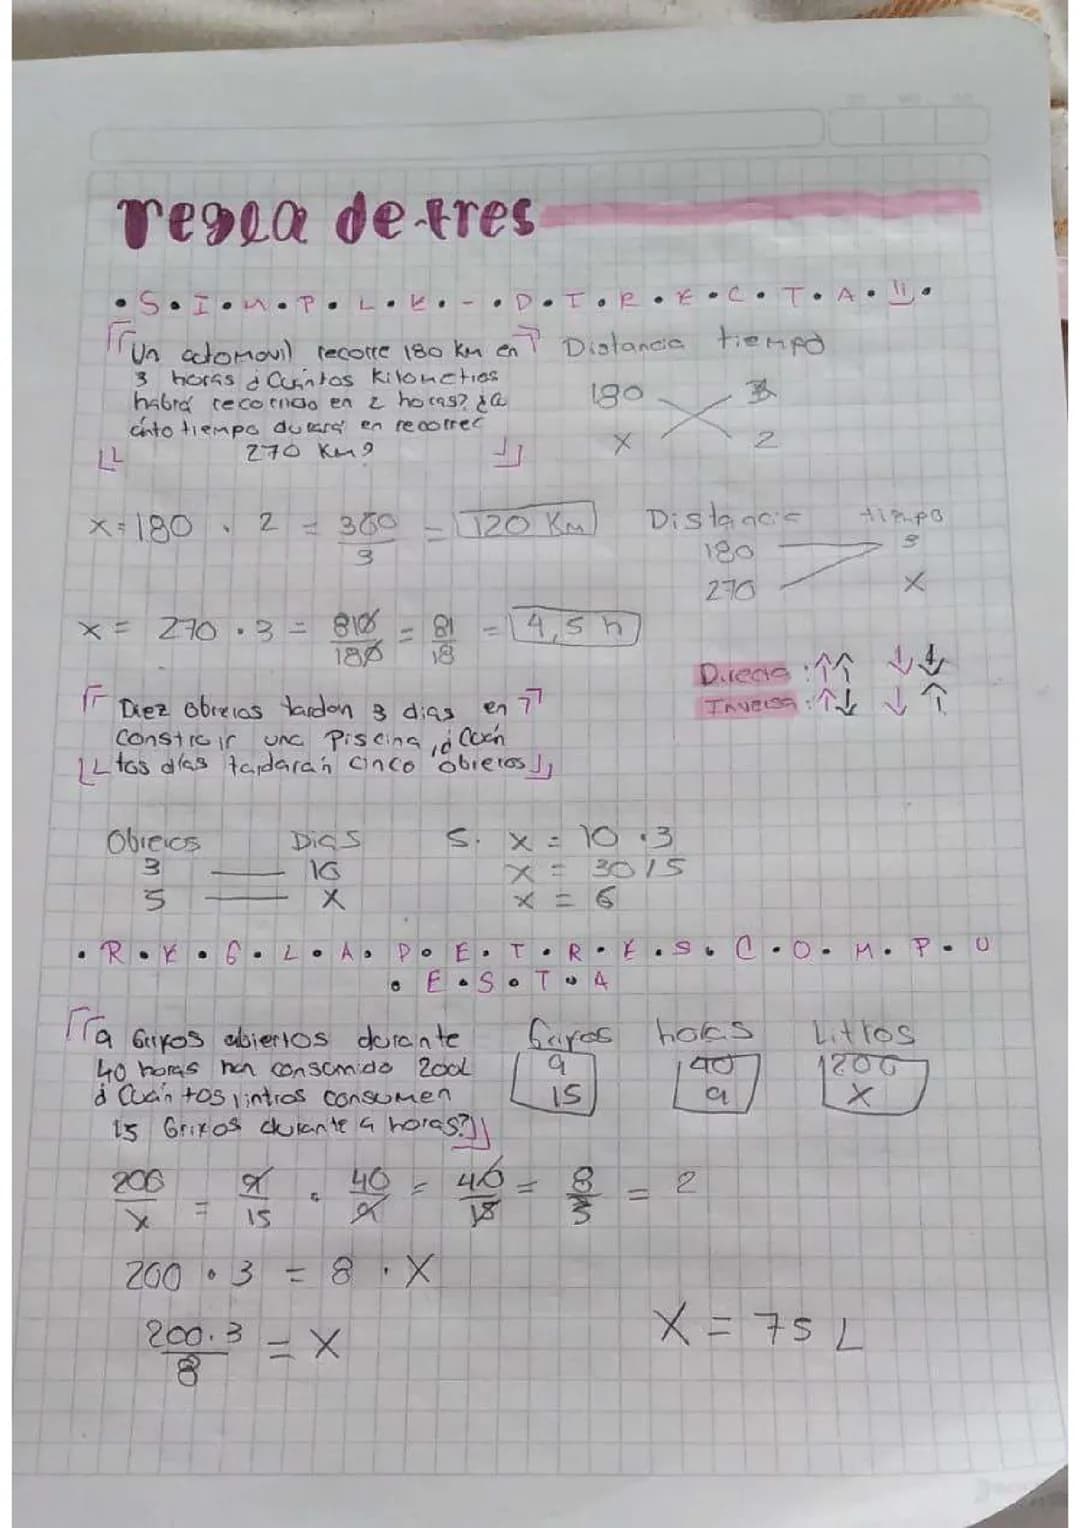 regla de tres
• S • I • M • P • L • E • - • D • I • R • E • C • T • A • !! •
Un automovil recorre 180 Km en
3 horas ¿Cuántos Kilometros
habrá recorrido en 2 horas? ¿a
cnto tiempo durará en recorrer
270 Km?
Distancia tiempo
180 3
X 2
X = 180 . 2 = 360/3 = 120 Km
Distancia tiempo
180 3
270 X
X = 270 . 3 = 810/180 = 81/18 = 4,5 h
Directa : ↑↑ ↓↓
Inversa : ↑↓ ↓↑
Diez obreros tardan 3 dias en
construir una Piscina, ¿Cuán
tos días tardarán cinco obreros
Obreros Dias
3 10
5 X
5. X = 10 . 3
X = 30/5
X = 6
• R • E • G • L • A • D • E • T • R • E • S • C • O • M • P • U
• E • S • T • A
9 Grifos abiertos durante
40 horas han consumido 200L
¿Cuántos lintros consumen
15 Grifos durante 9 horas?
Grifos horas Litros
9 40 200
15 9 X
200/X = 9/15 . 40/9 = 40/15 = 8/3 = 2
200 . 3 = 8 . X
200.3/8 = X
X = 75 L